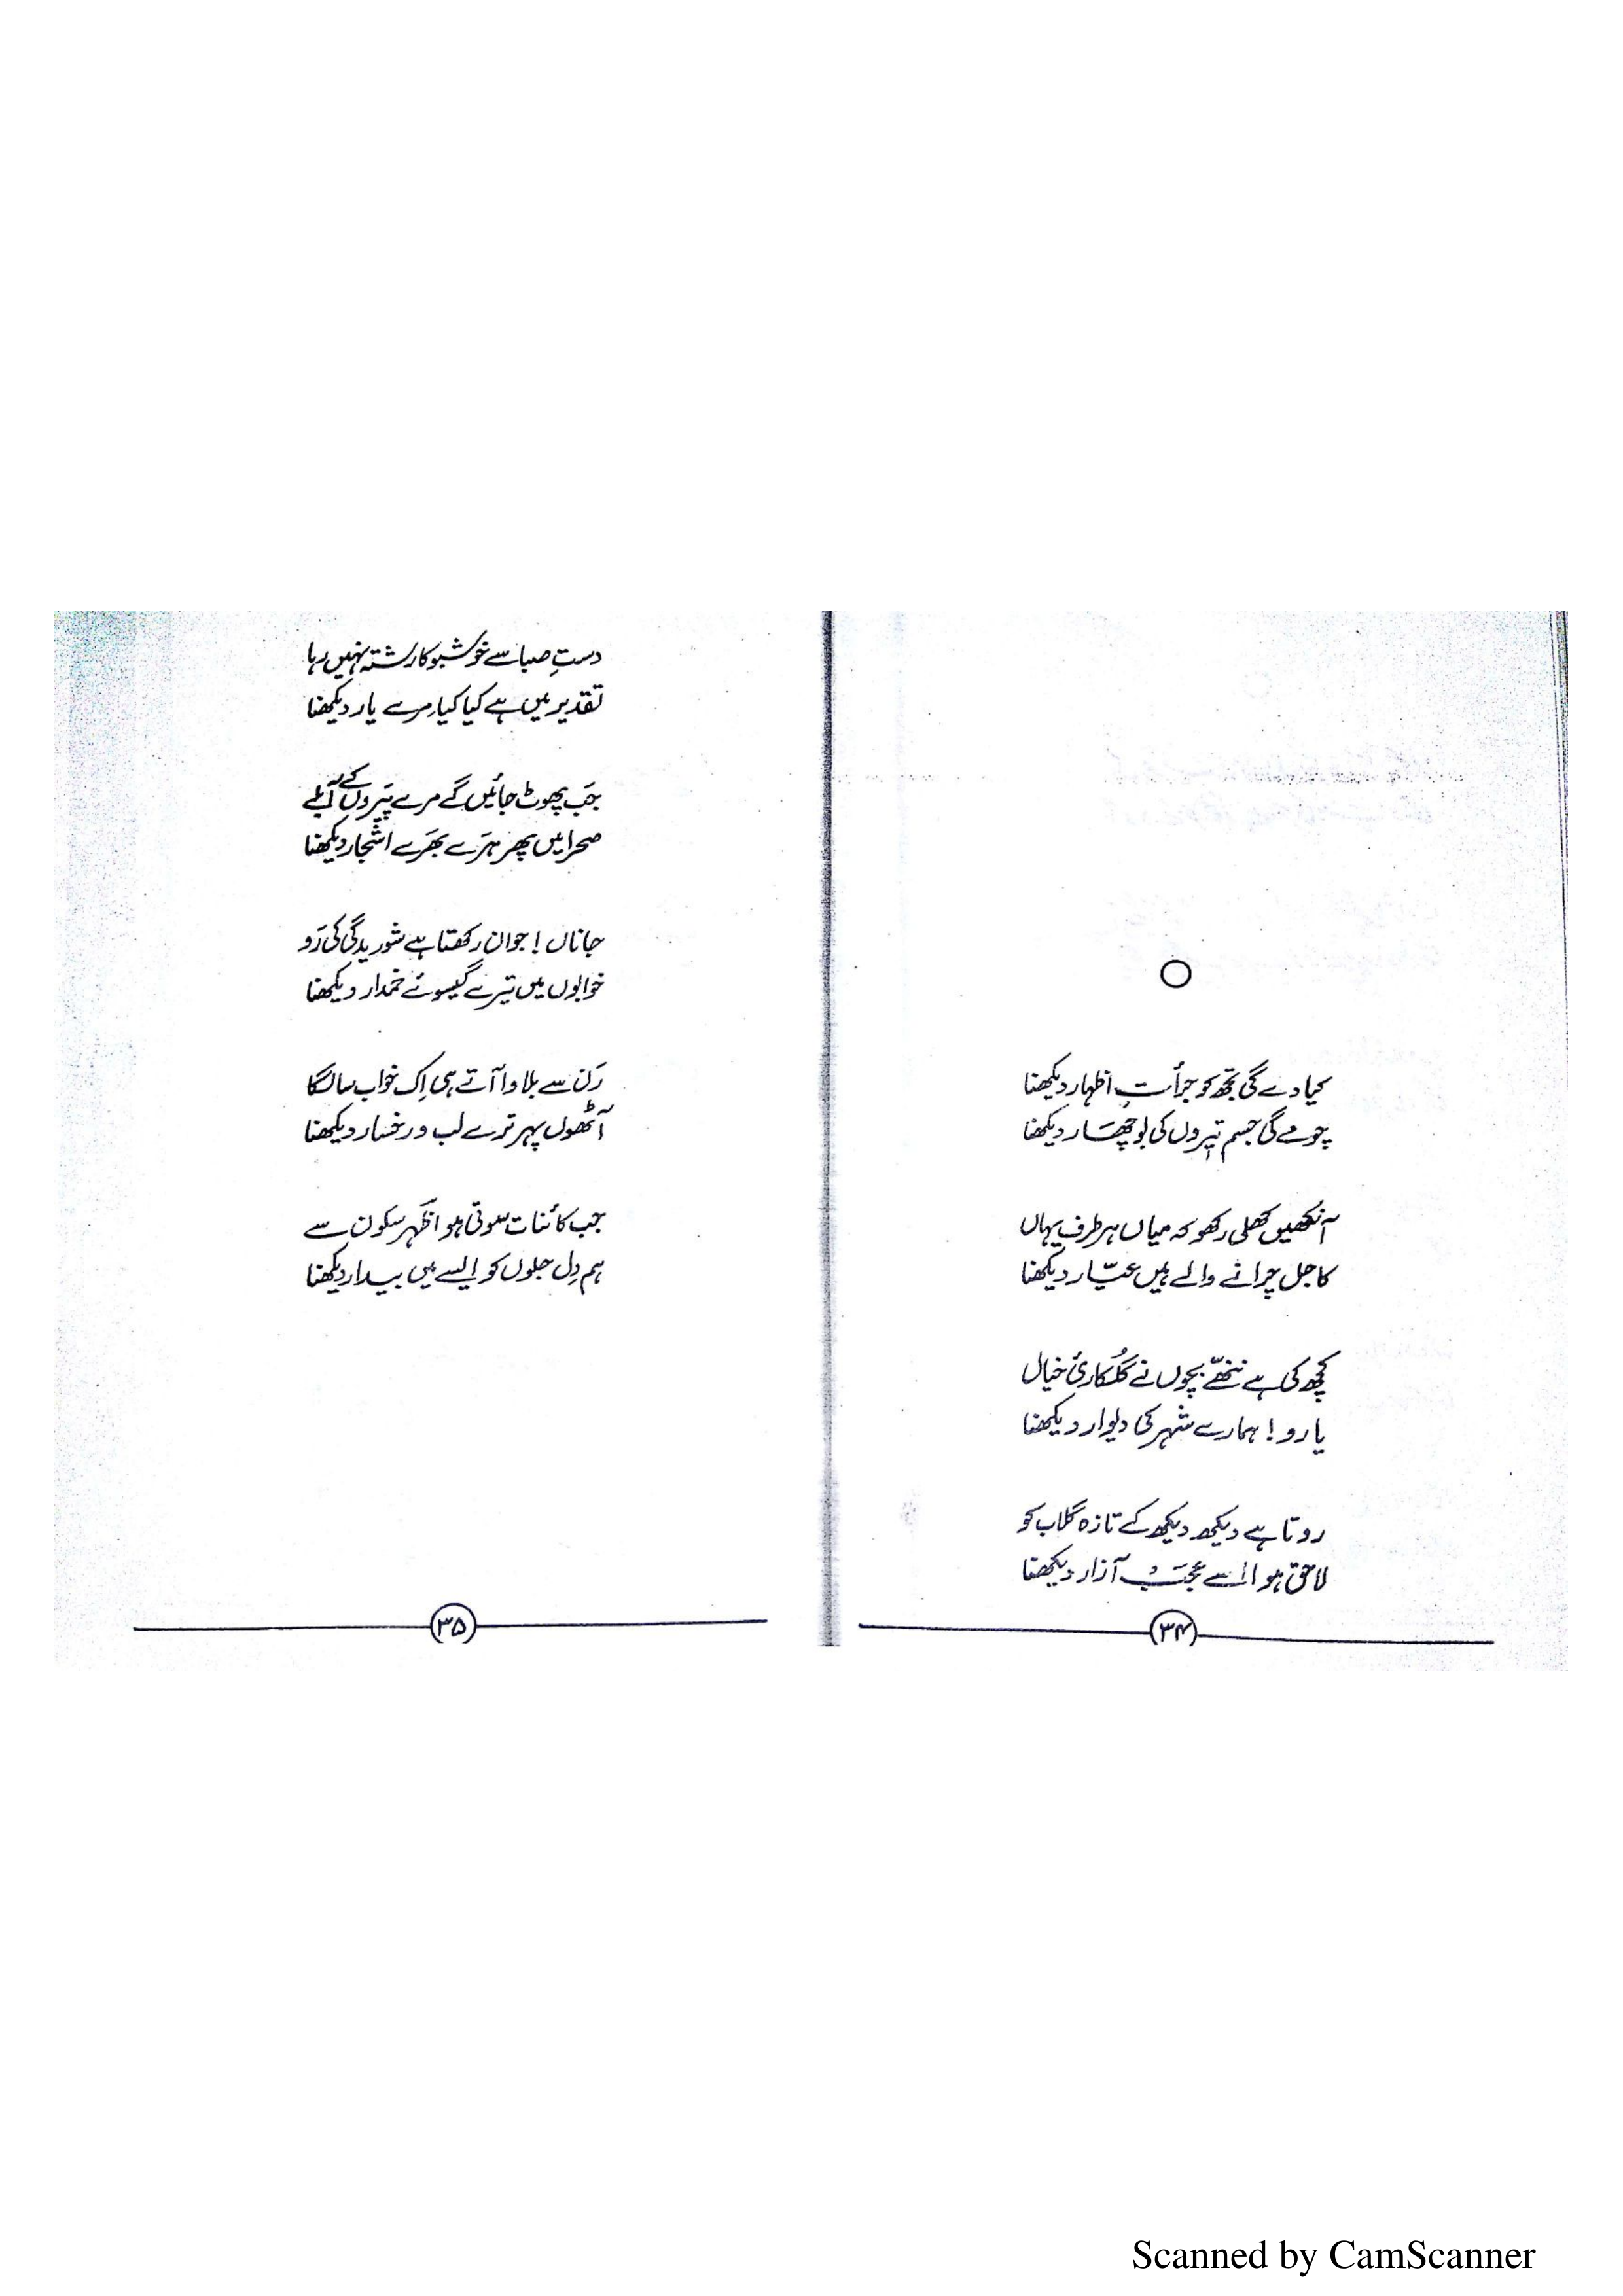 ○
کیا دے گی تجھ کو جرأتِ اظہار دیکھنا
چومے گی جسم تیروں کی بوچھَار دیکھنا
آنکھیں کھلی رکھو کہ میاں ہر طرف یہاں
کاجل چرانے والے ہیں عیّار دیکھنا
کچھ کی ہے ننھّے بچوں نے گُلکاریٔ خیال
یارو! ہمارے شہر کی دیوار دیکھنا
روتا ہے دیکھ دیکھ کے تازہ گلاب کو
لاحق ہوا اسے عجَب آزار دیکھنا
۳۴
دستِ صبا سے خوشبو کا رشتہ نہیں رہا
تقدیر میں ہے کیا کیا مِرے یار دیکھنا
جَب پھوٹ جائیں گے مرے پَیروں کے آبلے
صحرا میں پھر ہَرے بھَرے اشجار دیکھنا
جاناں! جوان رکھتا ہے شوریدگی کی رَو
خوابوں میں تیرے گیسوئے خمدار دیکھنا
رَن سے بلاوا آتے ہی اِک خواب سا لگا
آٹھوں پہر ترے لب و رخسار دیکھنا
جب کائنات سوتی ہو اظہر سکون سے
ہم دِل جلوں کو ایسے میں بیدار دیکھنا
۳۵
Scanned by CamScanner